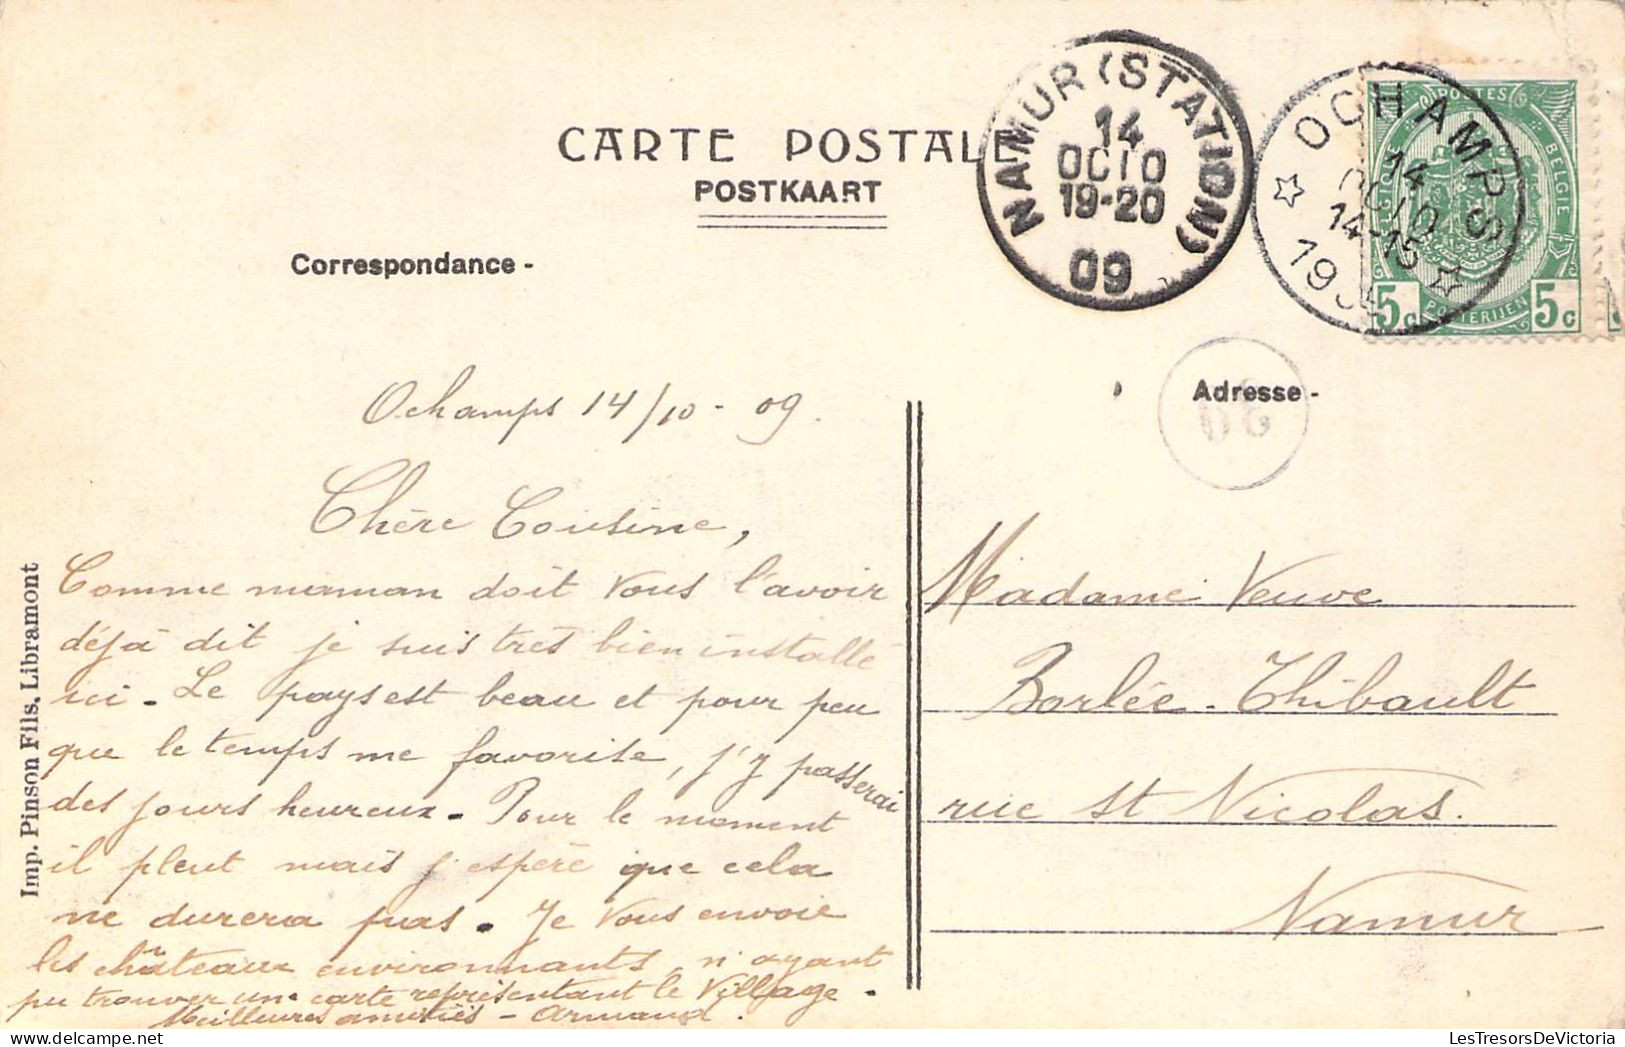 CARTE POSTALE
POSTKAART
Correspondance -
NAMUR (STATION)
14
OCTO
19-20
09
OCHAMPS
14
OCTO
14-15
19
POSTES
BELGIQUE BELGIË
POSTERIJEN
5c 5c
Adresse -
Ochamps 14/10 - 09.
Chère Cousine,
Comme maman doit vous l'avoir
déjà dit je suis très bien installé
ici. Le pays est beau et pour peu
que le temps me favorise, j'y passerai
des jours heureux. Pour le moment
il pleut mais j'espère que cela
ne durera pas. Je vous envoie
les châteaux environnants, n'ayant
pu trouver une carte représentant le village.
Meilleures amitiés - Armand.
Madame Veuve
Borlée-Thibault
rue St Nicolas.
Namur
Imp. Pinson Fils. Libramont
LesTresorsDeVictoria